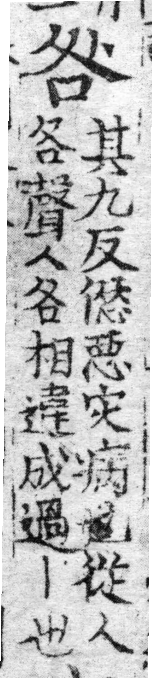 咎
其九反愆惡灾病也從人
各聲人各相違成過丨也